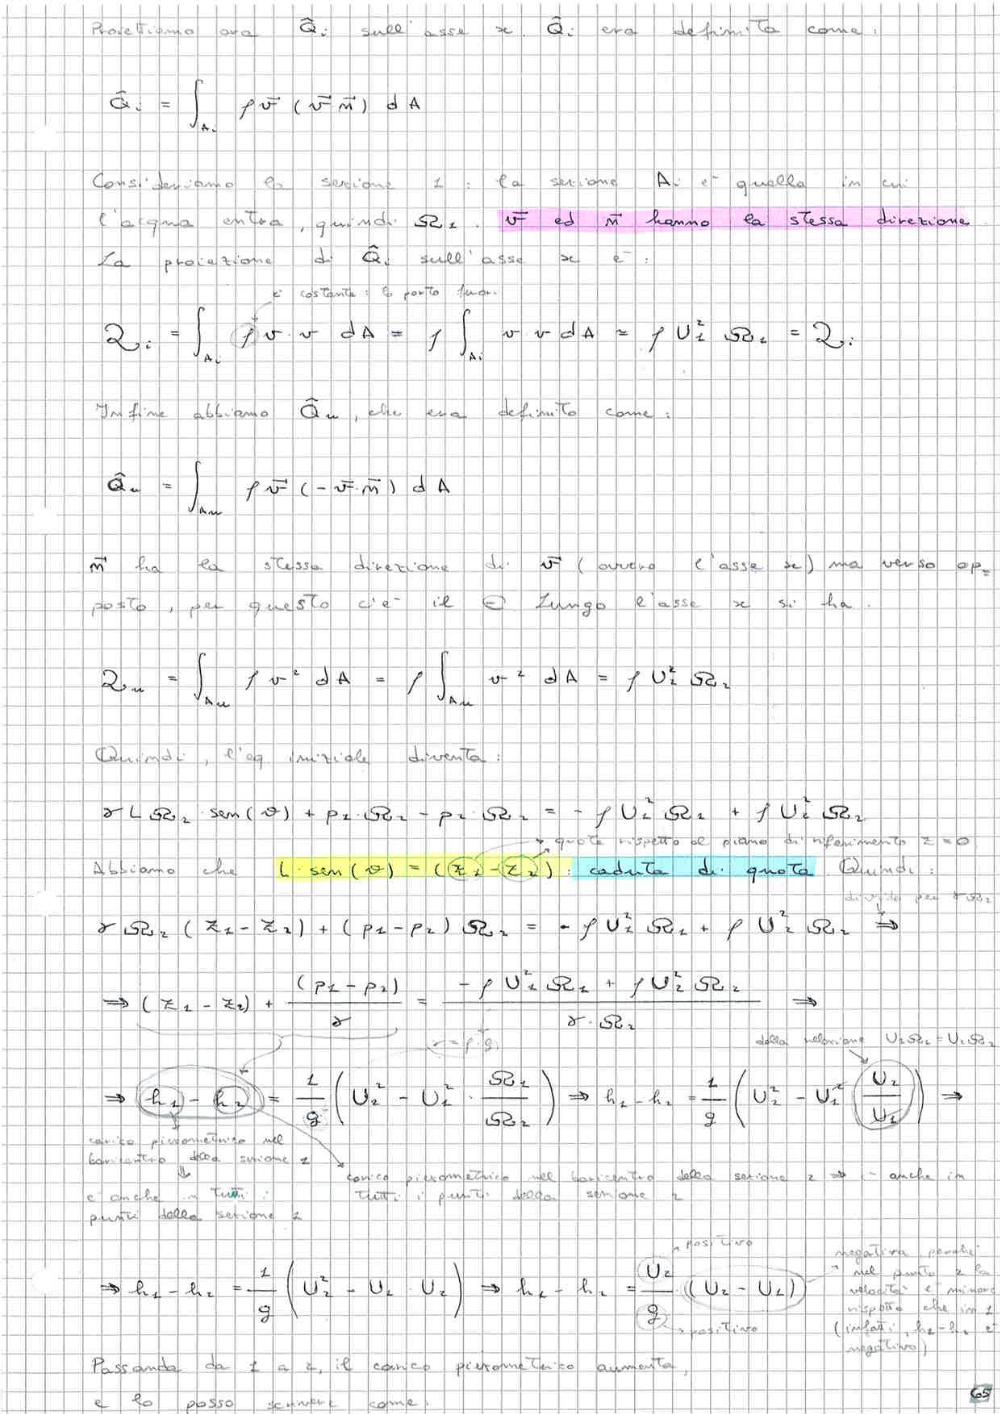 Proiettiamo ora Q̂ᵢ sull'asse x. Q̂ᵢ era definito come:
Q̂ᵢ = ∫_Aᵢ ρ v⃗ (v⃗ n⃗) dA
Consideriamo la sezione 1: la sezione Aᵢ è quella in cui
l'acqua entra, quindi Ω₁. v⃗ ed n⃗ hanno la stessa direzione
La proiezione di Q̂ᵢ sull'asse x è:
è costante: lo porto fuori
Qᵢ = ∫_Aᵢ ρ v · v dA = ρ ∫_Aᵢ v v dA = ρ U₁² Ω₁ = Qᵢ
Infine abbiamo Q̂u, che era definito come:
Q̂u = ∫_Au ρ v⃗ (-v⃗·n⃗) dA
n⃗ ha la stessa direzione di v⃗ (ovvero l'asse x) ma verso op=
posto, per questo c'è il ⊖ Lungo l'asse x si ha:
Qu = ∫_Au ρ v² dA = ρ ∫_Au v² dA = ρ U₂² Ω₂
Quindi, l'eq iniziale diventa:
γ L Ω₂ · sen(θ) + p₁ · Ω₂ - p₂ · Ω₂ = - ρ U₁² Ω₁ + ρ U₂² Ω₂
quote rispetto al piano di riferimento z=0
Abbiamo che L·sen(θ) = (z₁-z₂): caduta di quota. Quindi:
divido per γΩ₂
γ Ω₂ (z₁-z₂) + (p₁-p₂) Ω₂ = - ρ U₁² Ω₁ + ρ U₂² Ω₂ ⇒
⇒ (z₁ - z₂) + (p₁-p₂)/γ = (-ρ U₁² Ω₁ + ρ U₂² Ω₂)/(γ·Ω₂) ⇒
γ=ρ·g
dalla relazione U₂Ω₂=U₁Ω₁
⇒ h₁ - h₂ = 1/g (U₂² - U₁² · Ω₁/Ω₂) ⇒ h₁-h₂ = 1/g (U₂² - U₁² U₂/U₁) ⇒
carico piezometrico nel
baricentro della sezione 1
è anche in tutti i
punti della sezione 1
carico piezometrico nel baricentro della sezione 2 ⇒ è anche in
tutti i punti della sezione 2
positivo
⇒ h₁-h₂ = 1/g (U₂² - U₁ U₂) ⇒ h₁-h₂ = U₂/g · (U₂ - U₁)
positivo
negativa perché
nel punto 2 la
velocità è minore
rispetto che in 1
(infatti, h₁-h₂ è
negativo)
Passando da 1 a 2, il carico piezometrico aumenta,
e lo posso scrivere come:
65